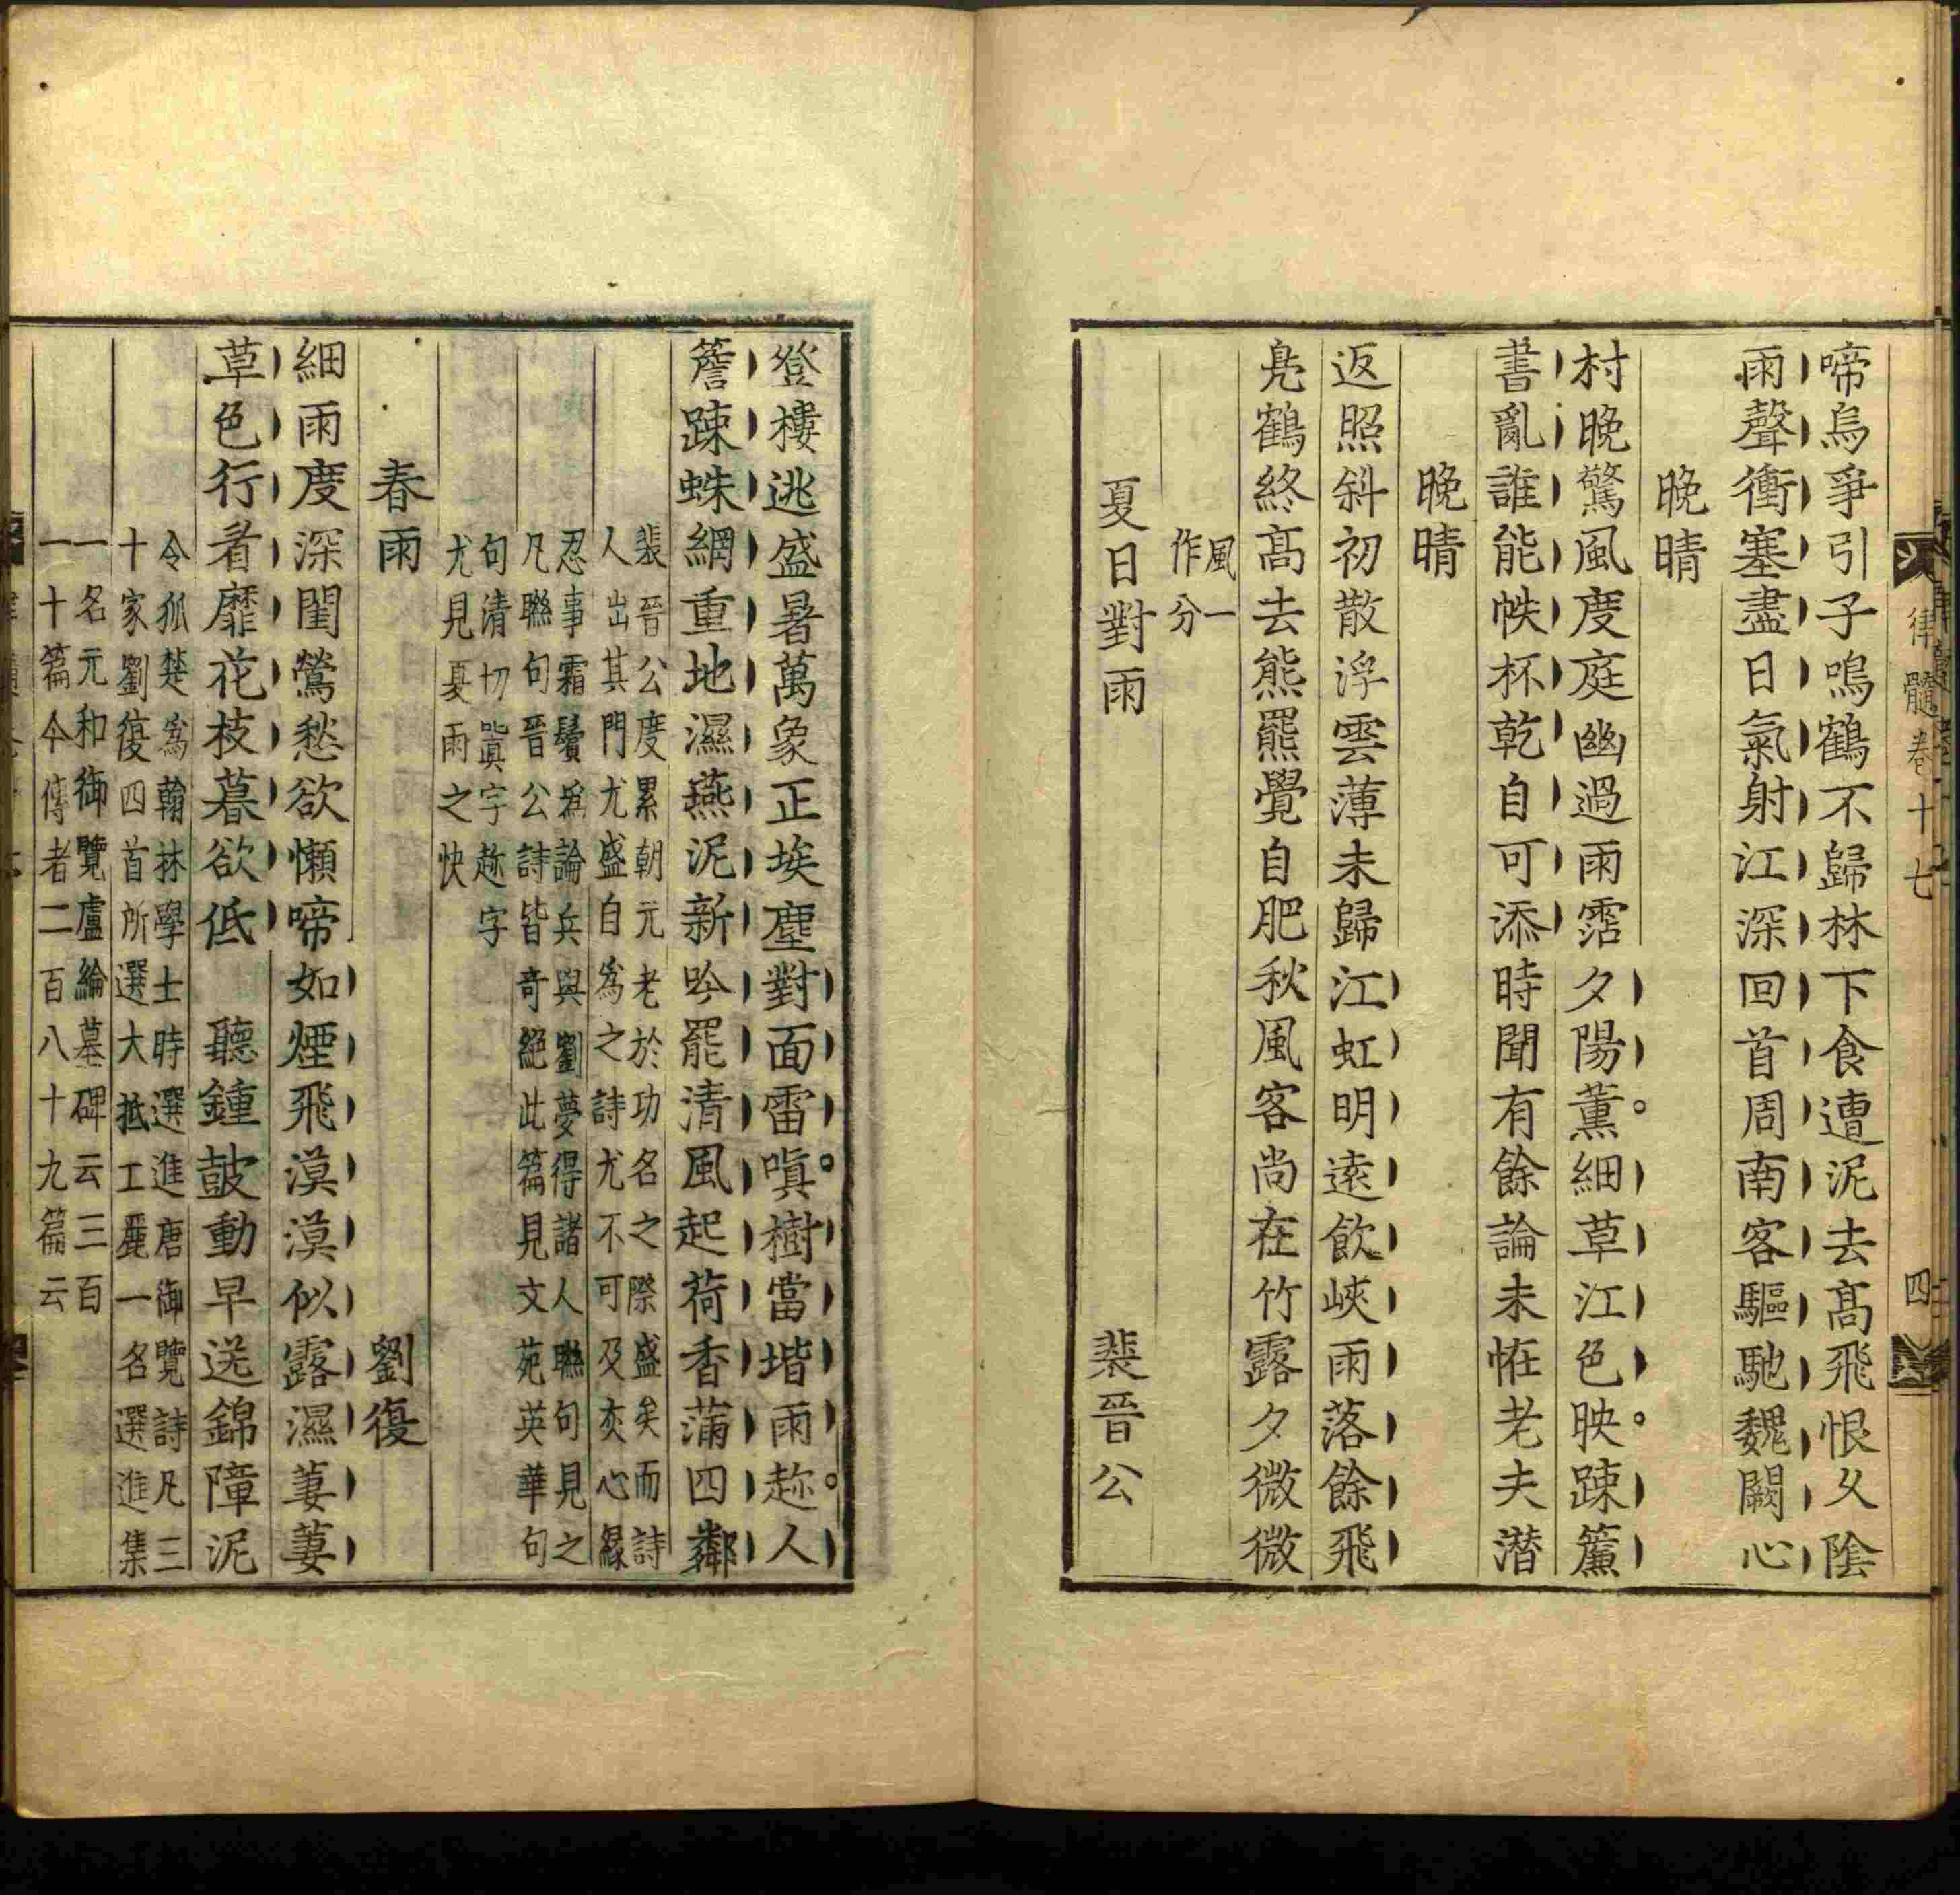 律髓卷十七 四
啼烏爭引子鳴鶴不歸林下食遭泥去高飛恨久陰
雨聲衝塞盡日氣射江深回首周南客驅馳魏闕心
晚晴
村晚驚風度庭幽過雨霑夕陽薰細草江色映踈簾
書亂誰能帙杯乾自可添時聞有餘論未恠老夫潛
晚晴
返照斜初散浮雲薄未歸江虹明遠飲峽雨落餘飛
鳧鶴終高去熊羆覺自肥秋風客尚在竹露夕微微
風一
作分
夏日對雨 裴晉公
登樓逃盛暑萬象正埃塵對面雷嗔樹當堦雨趂人
簷踈蛛網重地濕燕泥新吟罷清風起荷香滿四鄰
裴晉公度累朝元老於功名之際盛矣而詩
人出其門尤盛自為之詩尤不可及夾心緣
忍事霜鬢為論兵與劉夢得諸人聯句見之
凡聯句晉公詩皆奇絕此篇見文苑英華句
句清切嗔字趂字
尤見夏雨之快
春雨 劉復
細雨度深閨鶯愁欲懶啼如煙飛漠漠似露濕萋萋
草色行看靡花枝暮欲低 聽鍾鼓動早送錦障泥
令狐楚為翰林學士時選進唐御覽詩凡三
十家劉復四首所選大抵工麗一名選進集
一名元和御覽盧綸墓碑云三百
一十篇今傳者二百八十九篇云